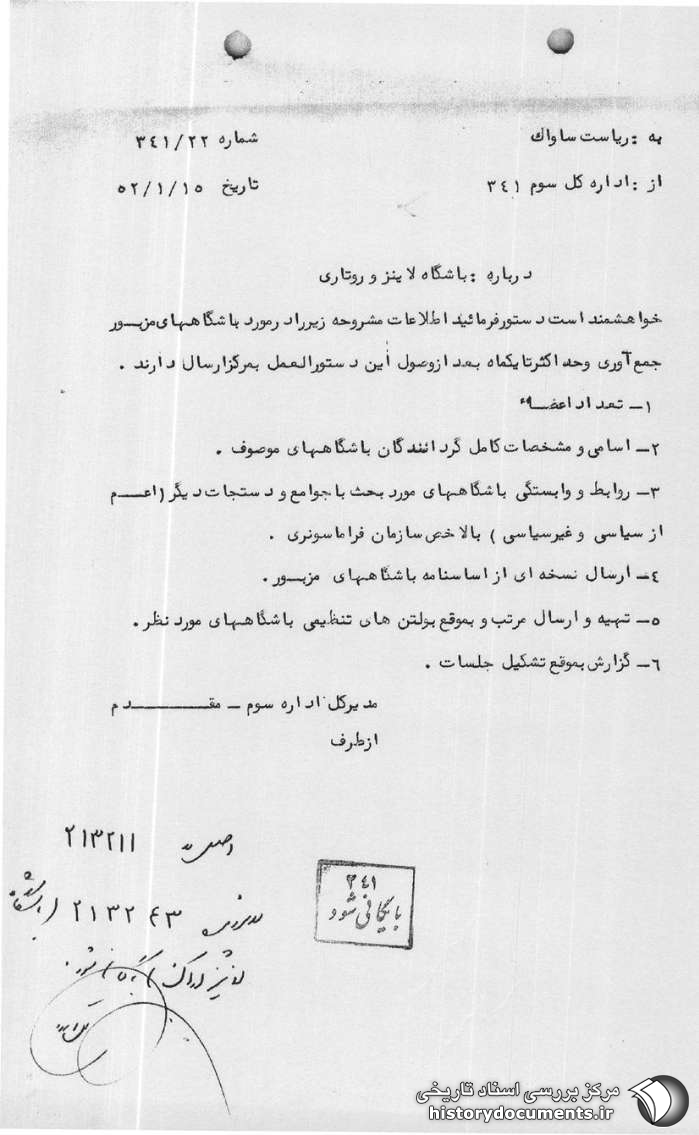 به : ریاست ساواك
شماره ۳٤۱/۲۲
از : اداره کل سوم ۳٤۱
تاریخ ۵۲/۱/۱۵
درباره : باشگاه لاینز و روتاری
خواهشمند است دستور فرمائید اطلاعات مشروحه زیر را در مورد باشگاههای مزبـور
جمع آوری وحداکثرتا یکماه بعد ازوصول این دستورالعمل بمرکز ارسال دارند .
۱ـ تعداد اعضـاء
۲ـ اسامی و مشخصات کامل گردانندگان باشگاههای موصوف .
۳ـ روابط و وابستگی باشگاههای مورد بحث با جوامع و دستجات دیگر (اعـم
از سیاسی و غیرسیاسی ) بالاخص سازمان فراماسونری .
٤ـ ارسال نسخه ای از اساسنامه باشگاههای مزبـور .
۵ـ تهیه و ارسال مرتب و بموقع بولتن های تنظیمی باشگاههای مورد نظر .
٦ـ گزارش بموقع تشکیل جلسات .
مدیرکل اداره سوم ـ مقـدم
ازطرف
۲۱۳۲۱۱
۳٤۱
بایگانی شود
۲۱۳۲٤۳
مرکز بررسی اسناد تاریخی
historydocuments.ir